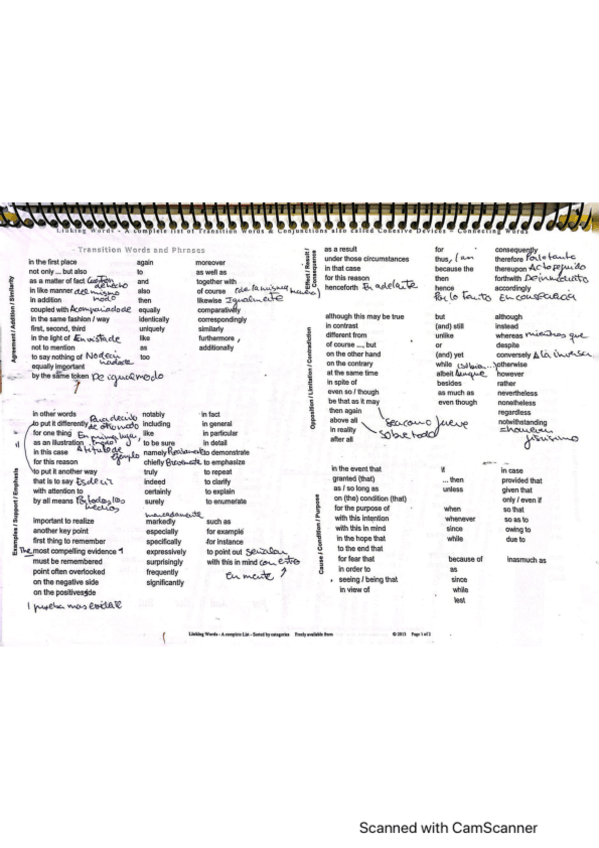 Linking Words - A complete list of Transition Words & Conjunctions also called Cohesive Devices – Connecting Words
Transition Words and Phrases
Agreement / Addition / Similarity
in the first place again moreover
not only ... but also to as well as
as a matter of fact and together with
in like manner del mismo modo also of course
in addition then likewise Igualmente
coupled with equally comparatively
in the same fashion / way identically correspondingly
first, second, third uniquely similarly
in the light of En vista de like furthermore
not to mention as additionally
to say nothing of too
equally important
by the same token De igual modo
Examples / Support / Emphasis
in other words notably in fact
to put it differently including in general
for one thing like in particular
as an illustration to be sure in detail
in this case namely to demonstrate
for this reason chiefly to emphasize
to put it another way truly to repeat
that is to say Es decir indeed to clarify
with attention to certainly to explain
by all means Por todos los medios surely to enumerate
marcadamente
important to realize markedly such as
another key point especially for example
first thing to remember specifically for instance
The most compelling evidence expressively to point out señalar
must be remembered surprisingly with this in mind con esto
point often overlooked frequently En mente
on the negative side significantly
on the positive side
Effect / Result / Consequence
as a result for consequently
under those circumstances thus, therefore Por lo tanto
in that case because the thereupon Acto seguido
for this reason then forthwith De inmediato
henceforth En adelante hence accordingly
Por lo tanto En consecuencia
Opposition / Limitation / Contradiction
although this may be true but although
in contrast (and) still instead
different from unlike whereas mientras que
of course ..., but or despite
on the other hand (and) yet conversely A la inversa
on the contrary while otherwise
at the same time albeit Aunque however
in spite of besides rather
even so / though as much as nevertheless
be that as it may even though nonetheless
then again regardless
above all notwithstanding
in reality sobre todo
after all
Cause / Condition / Purpose
in the event that if in case
granted (that) ... then provided that
as / so long as unless given that
on (the) condition (that) only / even if
for the purpose of when so that
with this intention whenever so as to
with this in mind since owing to
in the hope that while due to
to the end that
for fear that because of inasmuch as
in order to as
seeing / being that since
in view of while
lest
Linking Words - A complete List - Sorted by categories Freely available from © 2013 Page 1 of 2
Scanned with CamScanner